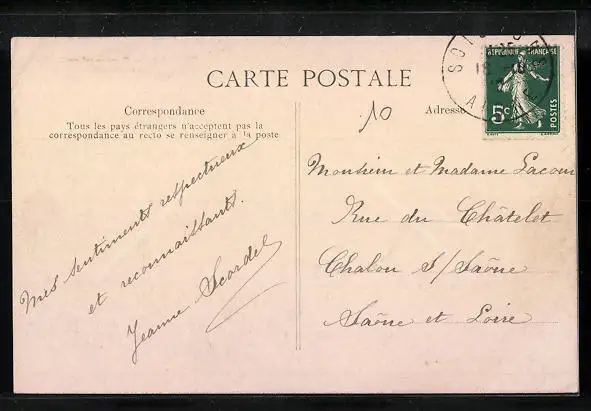 CARTE POSTALE
Correspondance
Tous les pays étrangers n'acceptent pas la
correspondance au recto se renseigner à la poste
Mes sentiments respectueux
et reconnaissants.
Jeanne
10
Adresse
RÉPUBLIQUE FRANÇAISE
5c
POSTES
Monsieur et Madame Lacour
Rue du Châtelet
Chalon S/Saône
Saône et Loire